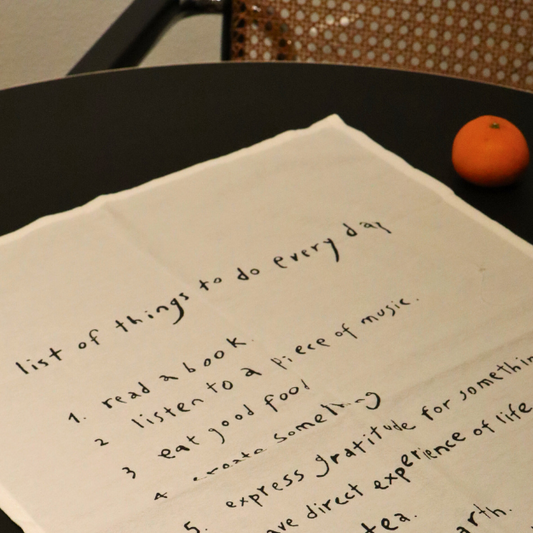 list of things to do every day
1. read a book
2 listen to a piece of music.
3 eat good food
4 create something
5. express gratitude for somethin
ave direct experience of life
tea.
arth.